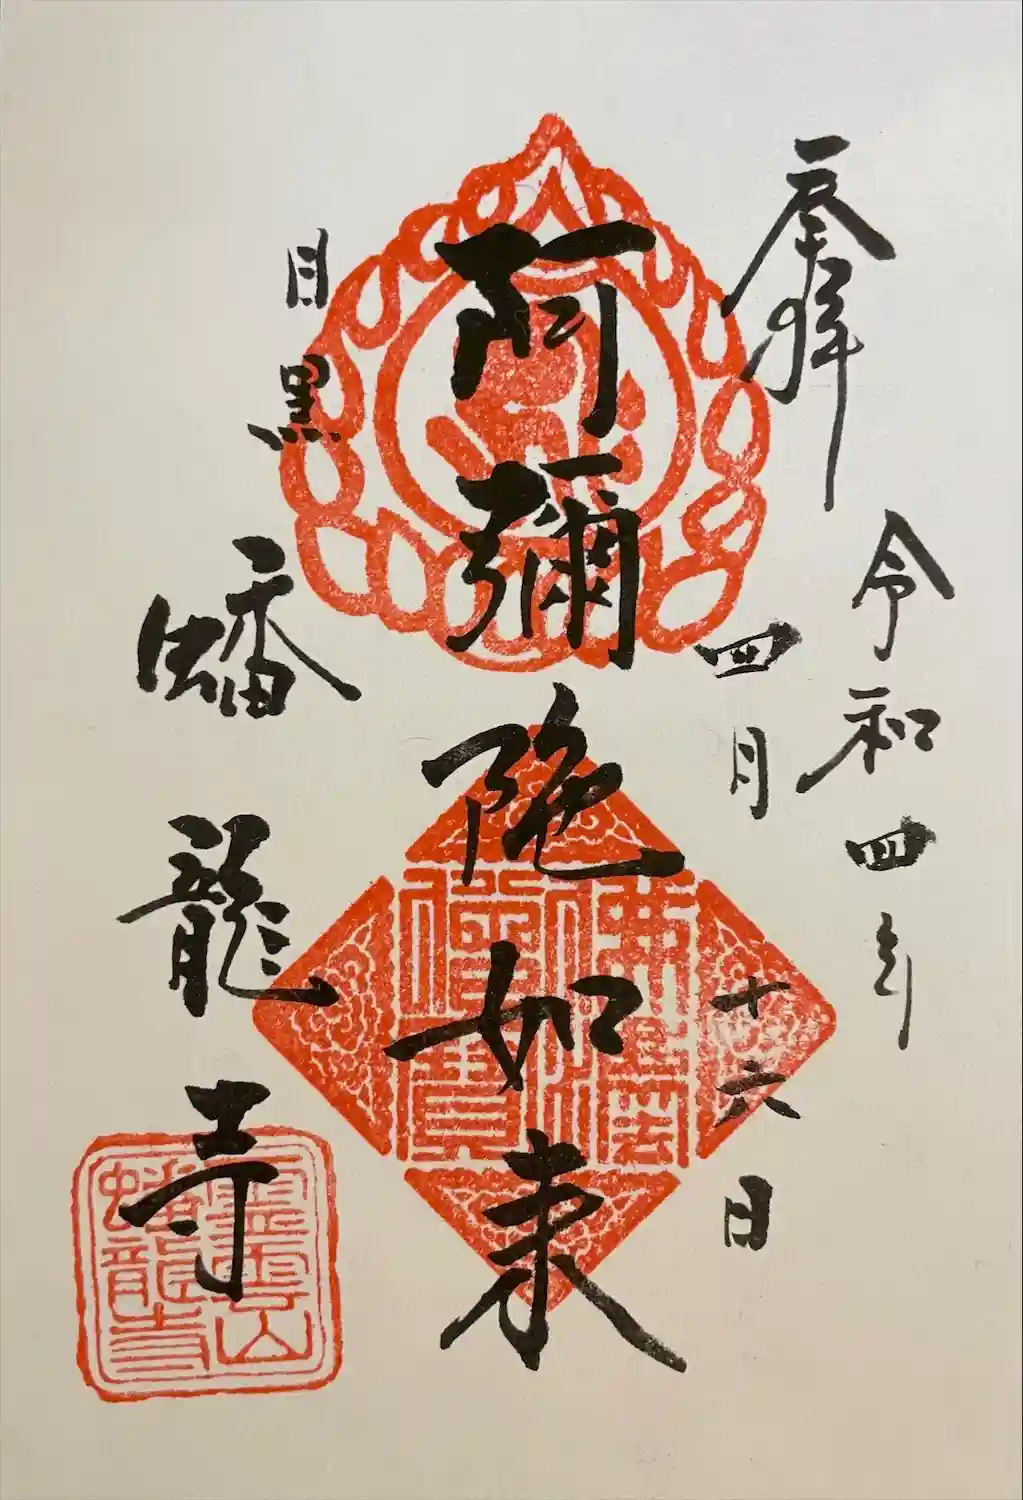 奉拝
令和四年
四月
十六日
阿彌陀如来
目黒
蟠龍寺
佛法僧寳
霊雲山
蟠龍寺